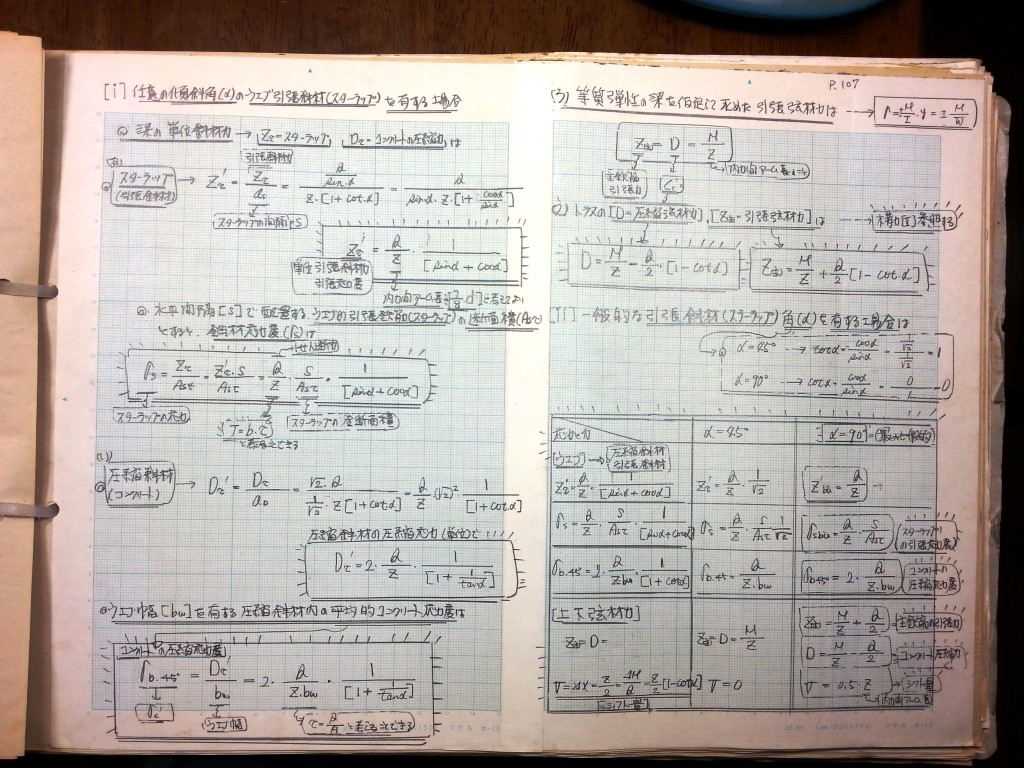 [i] 任意の傾斜角(α)のウェブ引張斜材(スターラップ)を有する場合
梁の単位斜材力 → Zτ=スターラップ, Dτ=コンクリートの圧縮力は
引張斜材力
スターラップ (引張斜材) → Zτ' = Zτ/as = (Q/sin.α)/(Z.[1+cot.α]) = Q/(sinα.Z.[1+cosα/sinα])
スターラップの間隔=S
Zτ' = Q/Z · 1/[sinα+cosα]
単位引張斜材力
引張応力度
内力間アーム長
水平間隔[S]で配置する、ウェブの引張鉄筋(スターラップ)の断面積(Asτ)
とすれば、鋼材応力度(σs)は
σs = Zτ/Asτ = Zτ'.S/Asτ = Q/Z · S/Asτ · 1/[sinα+cosα]
スターラップの応力
スターラップの全断面積
T=b.τ
と考えてできる
圧縮斜材 (コンクリート) → Dτ' = Dτ/aD = √2.Q/(1/√2 · Z[1+cotα]) = Q/Z·(√2)² · 1/[1+cot.α]
圧縮斜材の圧縮応力(単位)で
Dτ' = 2· Q/Z · 1/[1+1/tanα]
ウェブ幅[bw]を有する圧縮斜材内の平均的コンクリート応力度は
コンクリートの圧縮応力度
σb.45° = Dτ'/bw = 2· Q/Z.bw · 1/[1+1/tanα]
σc'
ウェブ幅
τ=Q/A と考えることできる
P.107
(3) 等質弾性の梁を仮定して求めた引張弦材力は → σ=±M/I.y=±M/W
Zbu = D = M/Z
主鉄筋引張力
内力間アーム長
トラスの[D=圧縮弦材力],[Zbu=引張弦材力]は ---→ 構力[I]参照する
D = M/Z - Q/2 · [1-cotα]
Zbu = M/Z + Q/2 [1-cot.α]
[II] 一般的な引張斜材(スターラップ)角(α)を有する場合は
α=45° → cotα=cosα/sinα = (1/√2)/(1/√2) = 1
α=90° → cotα=cosα/sinα = 0/1 = 0
応力 α=45° [α=90°]=(最も一般的)
[ウェブ] → 圧縮斜材 引張斜材
Zτ' = Q/Z · 1/[sinα+cosα] Zτ' = Q/Z · 1/√2 Z'bu = Q/Z
σs = Q/Z · S/Asτ · 1/[sinα+cosα] σs = Q/Z · S/Asτ · 1/√2 σsbu = Q/Z · S/Asτ スターラップの引張応力度
σb.45° = 2· Q/Z.bw · 1/[1+cotα] σb.45° = Q/Z.bw σb45° = 2· Q/Z.bw コンクリートの圧縮応力度
[上下弦材力]
Zbu=D= Zbu=D=M/Z Zbu=M/Z + Q/2 主鉄筋の引張力
D=M/Z - Q/2 コンクリート圧縮力
[1-cotα] シフト量 V=0 V=0.5·Z シフト量
内力間アーム長